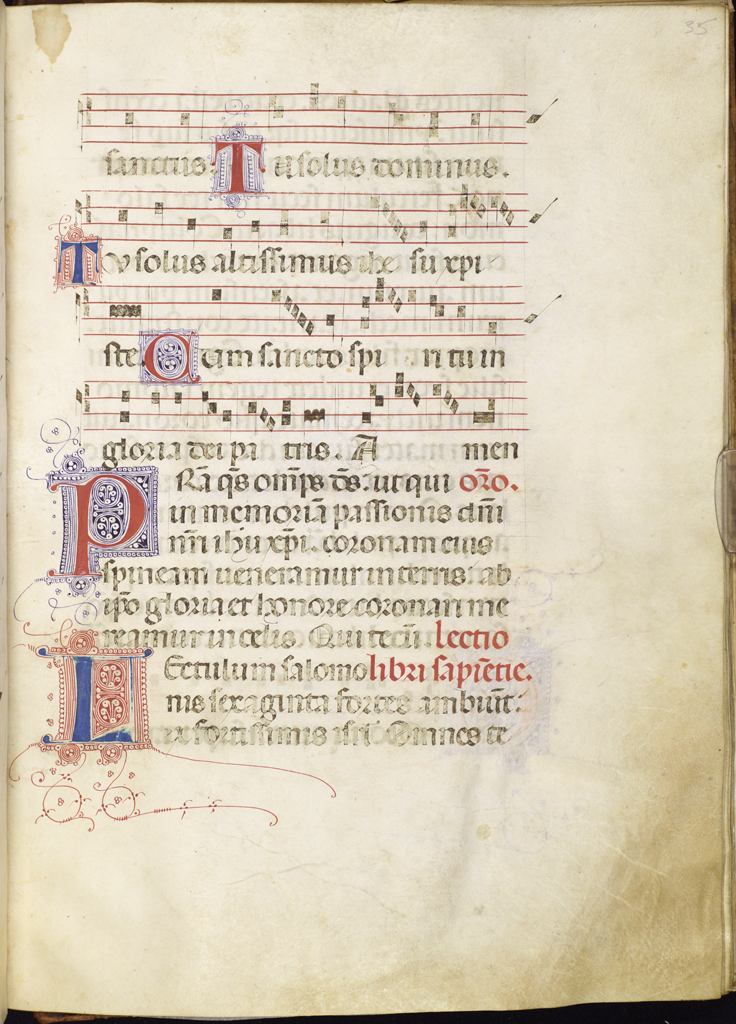 35
sanctus. Tu solus dominus.
Tu solus altissimus ihe su xpi
ste. Cum sancto spi ri tu in
gloria dei pa tris. A men
PRa q̄s om̄ps d̄s: ut qui or̄o.
in memoriā passionis dn̄i
nr̄i ihu xp̄i. coronam eius
spineam ueneramur in terris: ab
ip̄o gloria et honore coronari me
reamur in celis. Qui tecū. lectio
LEctulum salomo libri sapīetie.
nis sexaginta fortes ambiūt:
ex fortissimis isrl̄. Omnes te